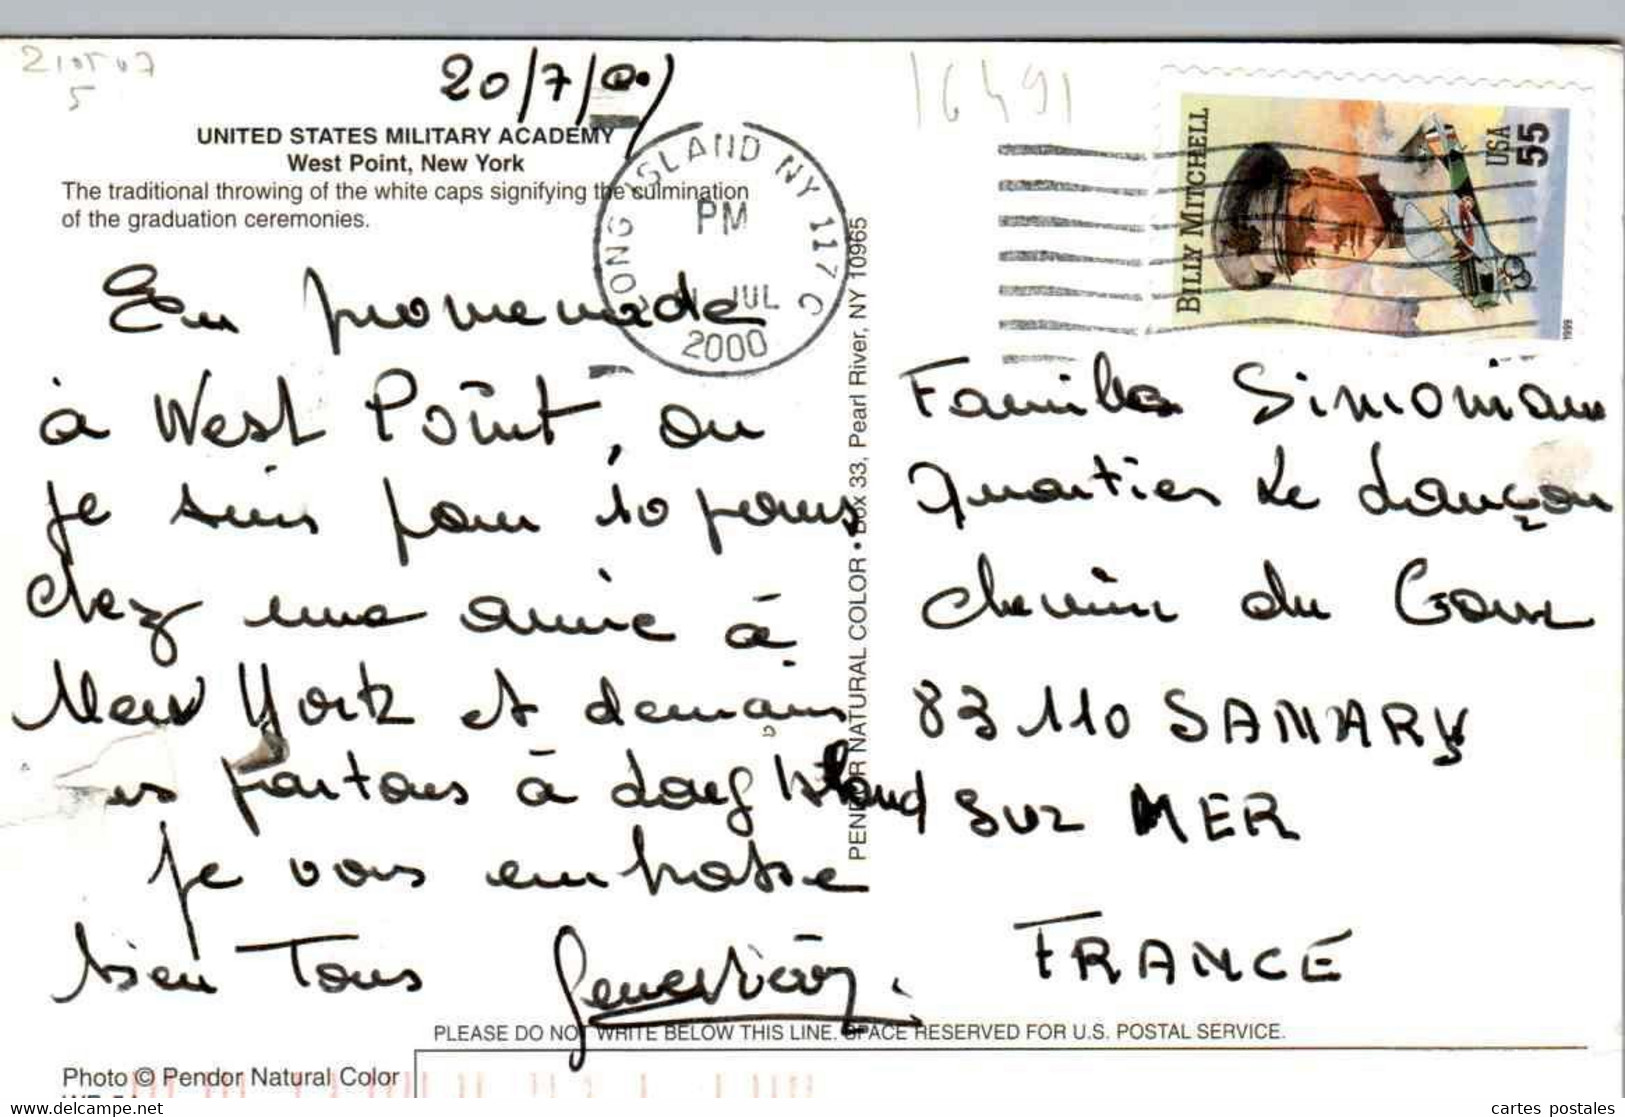 210507
5
20/7/00
16491
UNITED STATES MILITARY ACADEMY
West Point, New York
The traditional throwing of the white caps signifying the culmination
of the graduation ceremonies.
LONG ISLAND NY 117
PM
JUL
2000
BILLY MITCHELL
USA
55
1999
En promenade
à West Point, ou
je suis pour 10 jours
chez une amie à
New York et demain
partons à Long Island
Je vous embrasse
bien Tous Geneviève.
PENDOR NATURAL COLOR • Box 33, Pearl River, NY 10965
Famille Simonian
Quartier Le Lançon
chemin du Gour
83110 SANARY
SUR MER
FRANCE
PLEASE DO NOT WRITE BELOW THIS LINE. SPACE RESERVED FOR U.S. POSTAL SERVICE.
Photo © Pendor Natural Color
www.delcampe.net
cartes postales